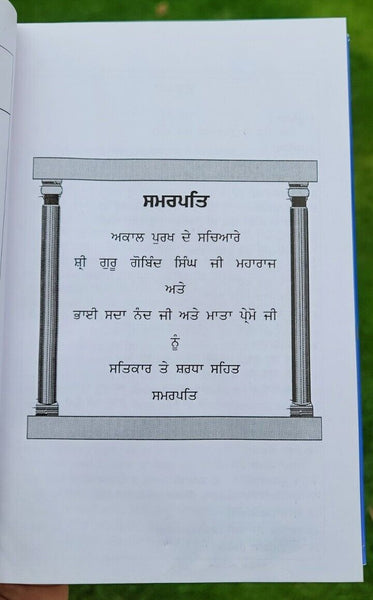 ਸਮਰਪਤਿ
ਅਕਾਲ ਪੁਰਖ ਦੇ ਸਚਿਆਰੇ
ਸ਼੍ਰੀ ਗੁਰੂ ਗੋਬਿੰਦ ਸਿੰਘ ਜੀ ਮਹਾਰਾਜ
ਅਤੇ
ਭਾਈ ਸਦਾ ਨੰਦ ਜੀ ਅਤੇ ਮਾਤਾ ਪ੍ਰੇਮੋ ਜੀ
ਨੂੰ
ਸਤਿਕਾਰ ਤੇ ਸ਼ਰਧਾ ਸਹਿਤ
ਸਮਰਪਤਿ